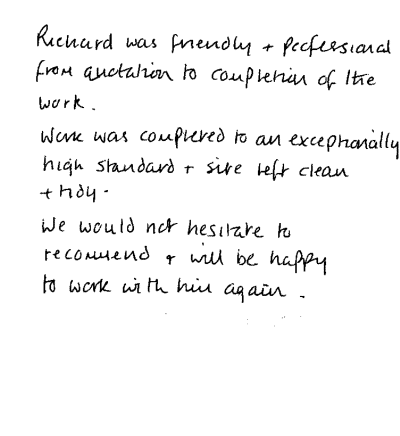 Richard was friendly + professional
from quotation to completion of the
work.
Work was completed to an exceptionally
high standard + site left clean
+ tidy.
We would not hesitate to
recommend + will be happy
to work with him again.